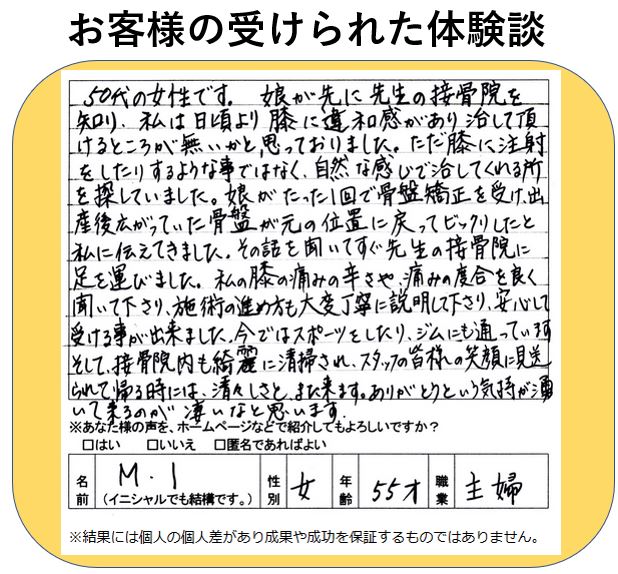 お客様の受けられた体験談
50代の女性です。 娘が先に先生の接骨院を
知り、私は日頃より膝に違和感があり治して頂
けるところが無いかと思っておりました。ただ膝に注射
をしたりするような事ではなく、自然な感じで治してくれる所
を探していました。娘がたった1回で骨盤矯正を受け、出
産後広がっていた骨盤が元の位置に戻ってビックリしたと
私に伝えてきました。その話を聞いてすぐ先生の接骨院に
足を運びました。私の膝の痛みの辛さや、痛みの度合を良く
聞いて下さり、施術の進め方も大変丁寧に説明して下さり、安心して
受ける事が出来ました。今ではスポーツをしたり、ジムにも通っています
そして、接骨院内も綺麗に清掃され、スタッフの皆様の笑顔に見送
られて帰る時には、清々しさと、また来ます。ありがとうという気持が湧
いて来るのが 凄いなと思います.
※あなた様の声を、ホームページなどで紹介してもよろしいですか？
□はい □いいえ □匿名であればよい
名前 M.I (イニシャルでも結構です。) 性別 女 年齢 55才 職業 主婦
※結果には個人の個人差があり成果や成功を保証するものではありません。